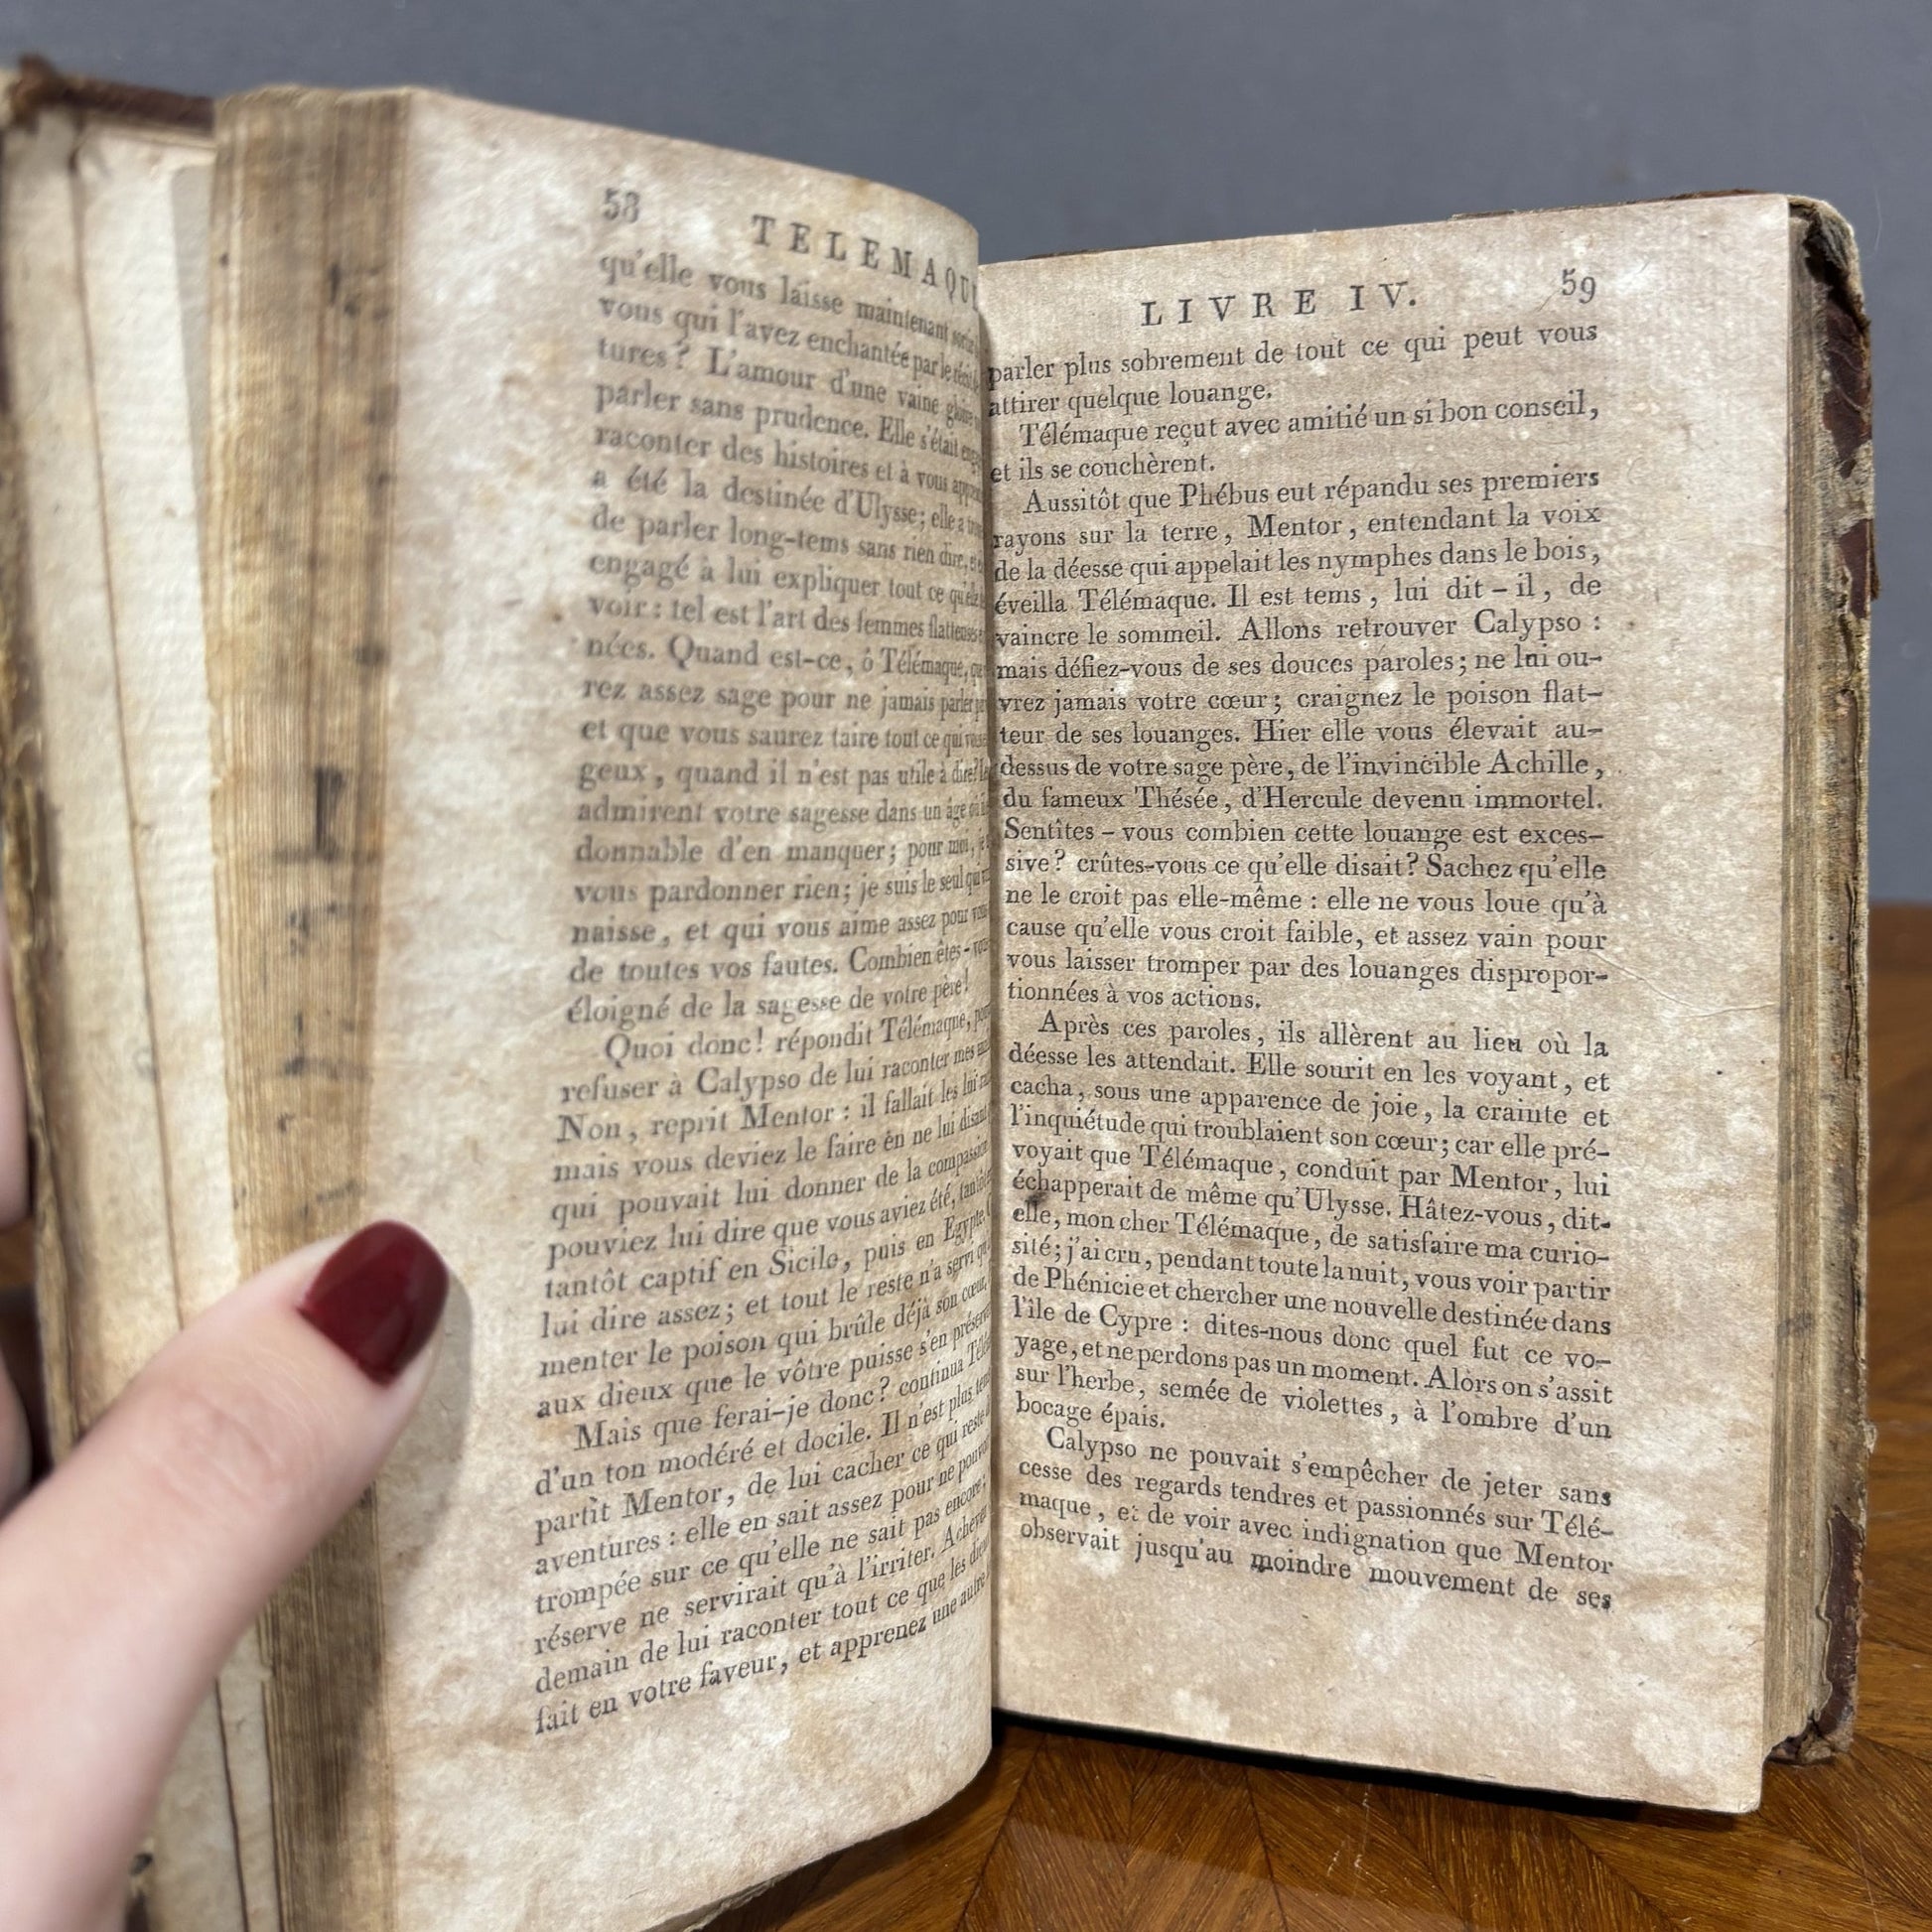 58
TELEMAQU
qu'elle vous laisse maintenant
vous qui l'avez enchantée par le
tures? L'amour d'une vaine
parler sans prudence. Elle s'était
raconter des histoires et à vous
a été la destinée d'Ulysse; elle a
de parler long-tems sans rien dire,
engagé à lui expliquer tout ce
voir : tel est l'art des femmes flatteuses
nées. Quand est-ce, ô Télémaque,
rez assez sage pour ne jamais parler
et que vous saurez taire tout ce qui
geux, quand il n'est pas utile à dire?
admirent votre sagesse dans un âge
donnable d'en manquer; pour moi,
vous pardonner rien; je suis le seul
naisse, et qui vous aime assez pour
de toutes vos fautes. Combien êtes-
éloigné de la sagesse de votre père!
Quoi donc! répondit Télémaque,
refuser à Calypso de lui raconter mes
Non, reprit Mentor : il fallait les lui
mais vous deviez le faire en ne lui disant
qui pouvait lui donner de la
pouviez lui dire que vous aviez été,
tantôt captif en Sicile, puis en Egypte.
lui dire assez; et tout le reste n'a servi
menter le poison qui brûle déjà son cœur.
aux dieux que le vôtre puisse s'en
Mais que ferai-je donc? continua
d'un ton modéré et docile. Il n'est plus
partit Mentor, de lui cacher ce qui reste
aventures : elle en sait assez pour ne
trompée sur ce qu'elle ne sait pas encore;
réserve ne servirait qu'à l'irriter. Achevez
demain de lui raconter tout ce que les
fait en votre faveur, et apprenez une autre
LIVRE IV. 59
parler plus sobrement de tout ce qui peut vous
attirer quelque louange.
Télémaque reçut avec amitié un si bon conseil,
et ils se couchèrent.
Aussitôt que Phébus eut répandu ses premiers
rayons sur la terre, Mentor, entendant la voix
de la déesse qui appelait les nymphes dans le bois,
éveilla Télémaque. Il est tems, lui dit-il, de
vaincre le sommeil. Allons retrouver Calypso :
mais défiez-vous de ses douces paroles; ne lui ou-
vrez jamais votre cœur; craignez le poison flat-
teur de ses louanges. Hier elle vous élevait au-
dessus de votre sage père, de l'invincible Achille,
du fameux Thésée, d'Hercule devenu immortel.
Sentîtes-vous combien cette louange est exces-
sive? crûtes-vous ce qu'elle disait? Sachez qu'elle
ne le croit pas elle-même : elle ne vous loue qu'à
cause qu'elle vous croit faible, et assez vain pour
vous laisser tromper par des louanges dispropor-
tionnées à vos actions.
Après ces paroles, ils allèrent au lieu où la
déesse les attendait. Elle sourit en les voyant, et
cacha, sous une apparence de joie, la crainte et
l'inquiétude qui troublaient son cœur; car elle pré-
voyait que Télémaque, conduit par Mentor, lui
échapperait de même qu'Ulysse. Hâtez-vous, dit-
elle, mon cher Télémaque, de satisfaire ma curio-
sité; j'ai cru, pendant toute la nuit, vous voir partir
de Phénicie et chercher une nouvelle destinée dans
l'île de Cypre : dites-nous donc quel fut ce vo-
yage, et ne perdons pas un moment. Alors on s'assit
sur l'herbe, semée de violettes, à l'ombre d'un
bocage épais.
Calypso ne pouvait s'empêcher de jeter sans
cesse des regards tendres et passionnés sur Télé-
maque, et de voir avec indignation que Mentor
observait jusqu'au moindre mouvement de ses